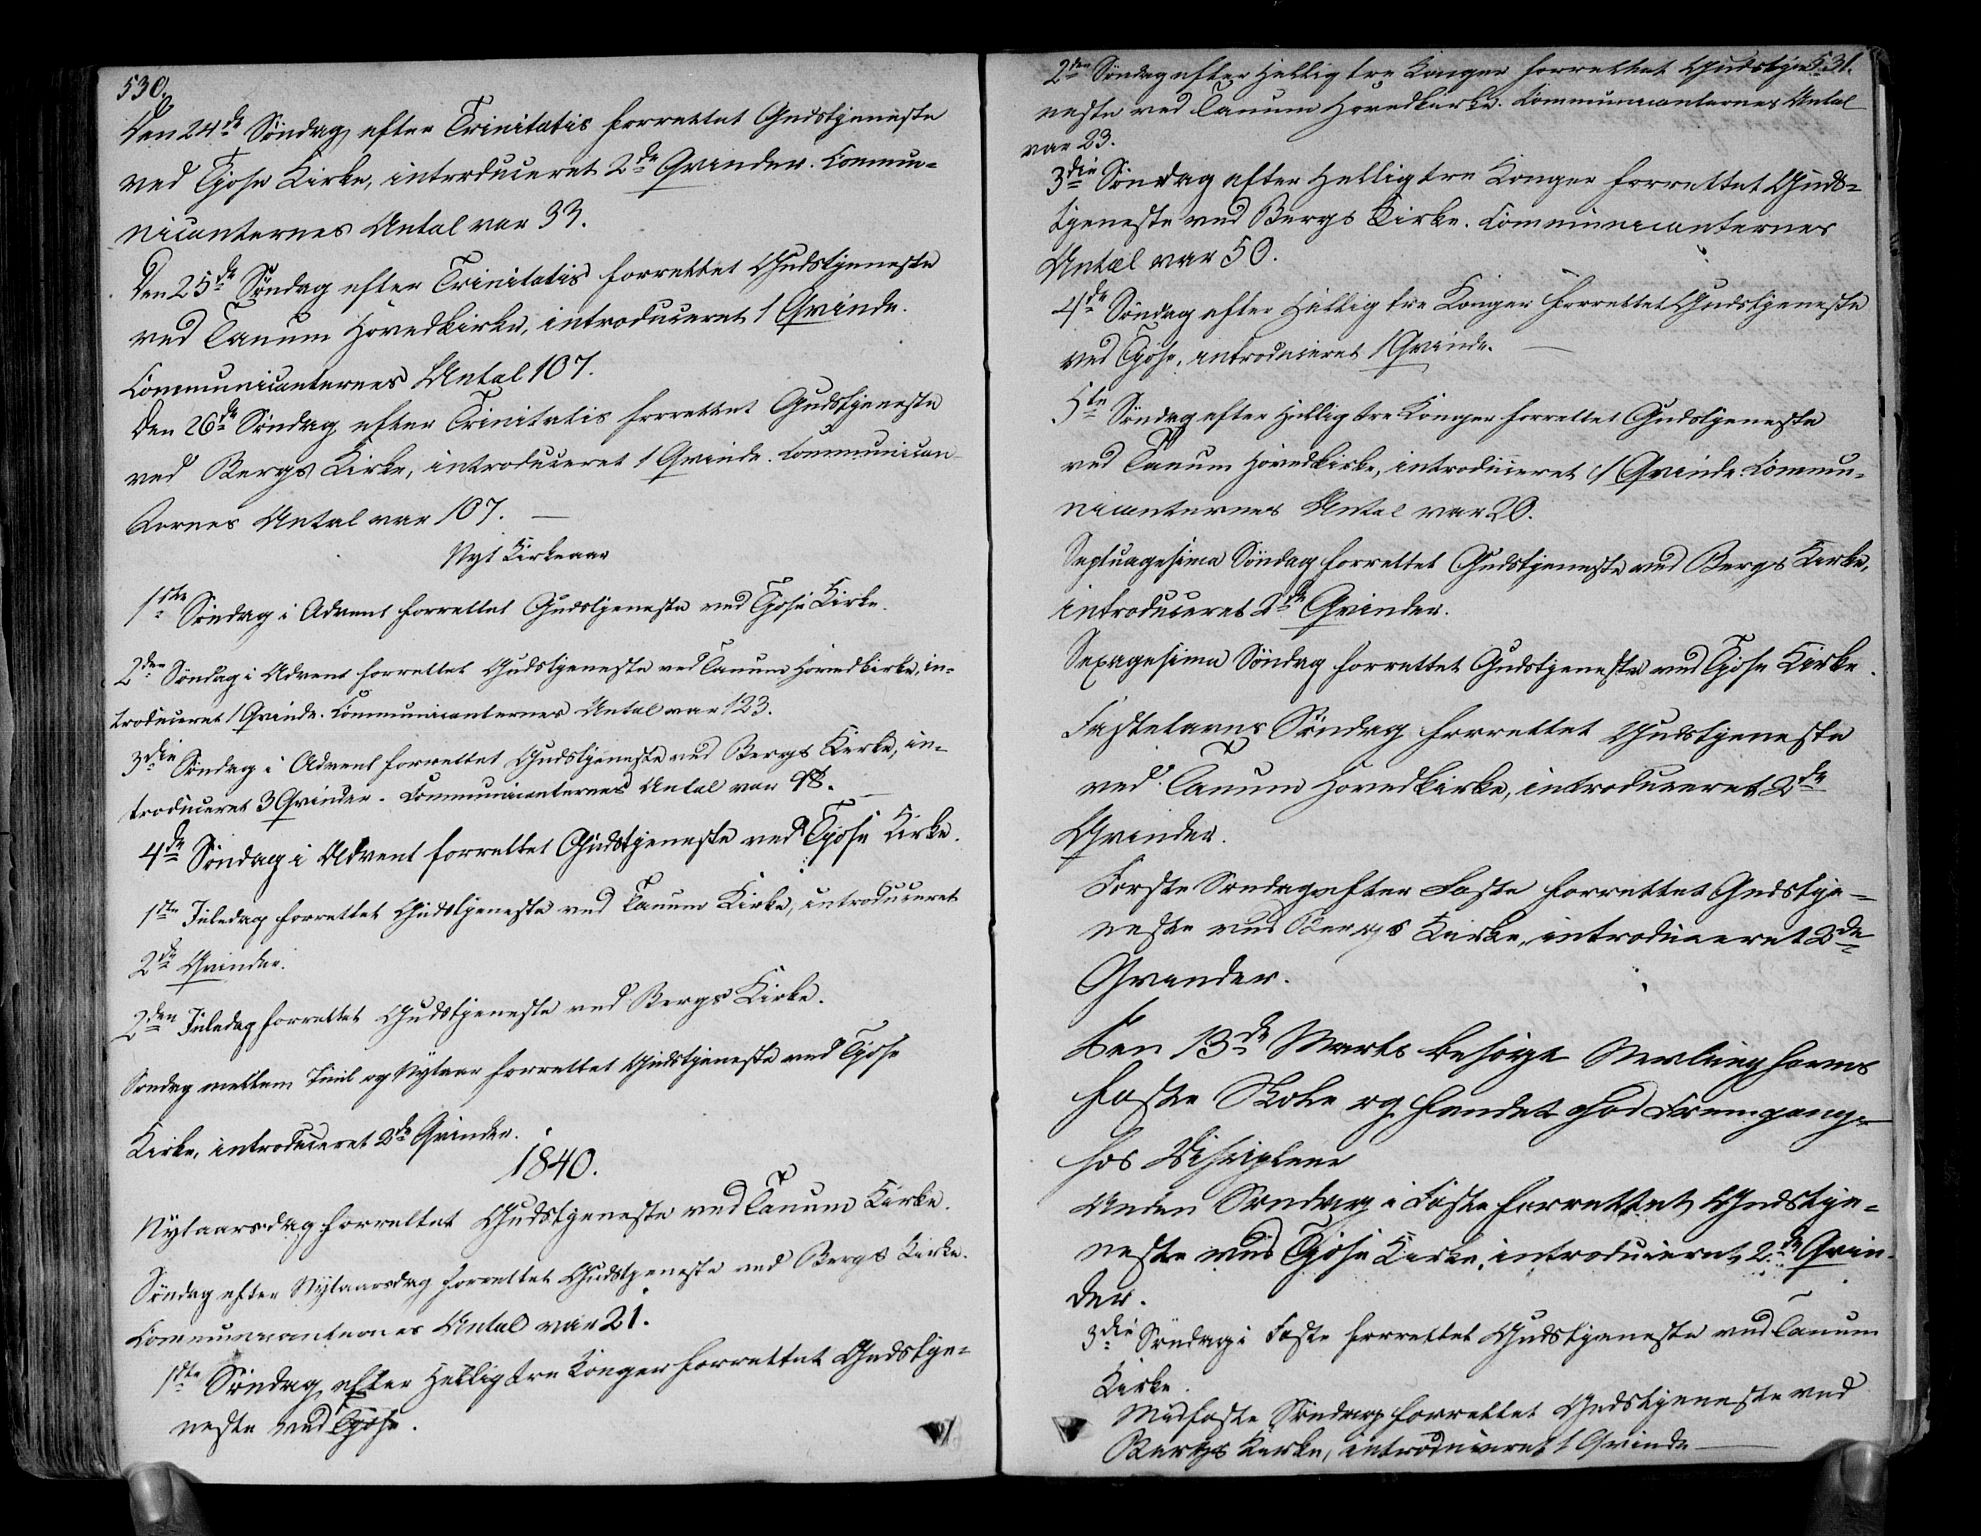 530.
Den 24de Søndag efter Trinitatis forrettet Gudstjeneste
ved Tjose Kirke, introduceret 2de Qvinder. Commu-
nicanternes Antal var 33.
Den 25de Søndag efter Trinitatis forrettet Gudstjeneste
ved Tanum Hovedkirke, introduceret 1 Qvinde.
Communicanternes Antal 107.
Den 26de Søndag efter Trinitatis forrettet Gudstjeneste
ved Bergs Kirke, introduceret 1 Qvinde. Communican-
ternes Antal var 107. —
Nyt Kirkeaar
1ste Søndag i Advent forrettet Gudstjeneste ved Tjose Kirke.
2den Søndag i Advent forrettet Gudstjeneste ved Tanum Hovedkirke, in-
troduceret 1 Qvinde. Communicanternes Antal var 123.
3die Søndag i Advent forrettet Gudstjeneste ved Bergs Kirke, in-
troduceret 3 Qvinder. Communicanternes Antal var 98. —
4de Søndag i Advent forrettet Gudstjeneste ved Tjose Kirke.
1ste Juledag forrettet Gudstjeneste ved Tanum Kirke, introduceret
2de Qvinder.
2den Juledag forrettet Gudstjeneste ved Bergs Kirke.
Søndag mellem Juul og Nytaar forrettet Gudstjeneste ved Tjose
Kirke, introduceret 2de Qvinder.
1840.
Nytaarsdag forrettet Gudstjeneste ved Tanum Kirke.
Søndag efter Nytaarsdag forrettet Gudstjeneste ved Bergs Kirke.
Communicanternes Antal var 21.
1ste Søndag efter Helligtre Konger forrettet Gudstje-
neste ved Tjose.
531.
2den Søndag efter Helligtre Konger forrettet Gudstje-
neste ved Tanum Hovedkirke. Communicanternes Antal
var 23.
3die Søndag efter Helligtre Konger forrettet Guds-
tjeneste ved Bergs Kirke. Communicanternes
Antal var 50.
4de Søndag efter Helligtre Konger forrettet Gudstjeneste
ved Tjose, introduceret 1 Qvinde. —
5te Søndag efter Helligtre Konger forrettet Gudstjeneste
ved Tanum Hovedkirke, introduceret 1 Qvinde. Commu-
nicanternes Antal var 20.
Septuagesima Søndag forrettet Gudstjeneste ved Bergs Kirke,
introduceret 2de Qvinder.
Sexagesima Søndag forrettet Gudstjeneste ved Tjose Kirke.
Fastelavns Søndag forrettet Gudstjeneste
ved Tanum Hovedkirke, introduceret 2de
Qvinder.
Første Søndag efter Faste forrettet Gudstje-
neste ved Bergs Kirke, introduceret 2de
Qvinder.
Den 13de Marts besøgt
faste Skole og fandet god Fremgang
hos Disciplene
Anden Søndag i Faste forrettet Gudstje-
neste ved Tjose Kirke, introduceret 2de Qvin-
der.
3die Søndag i Faste forrettet Gudstjeneste ved Tanum
Kirke.
Midfaste Søndag forrettet Gudstjeneste ved
Bergs Kirke, introduceret 1 Qvinde —